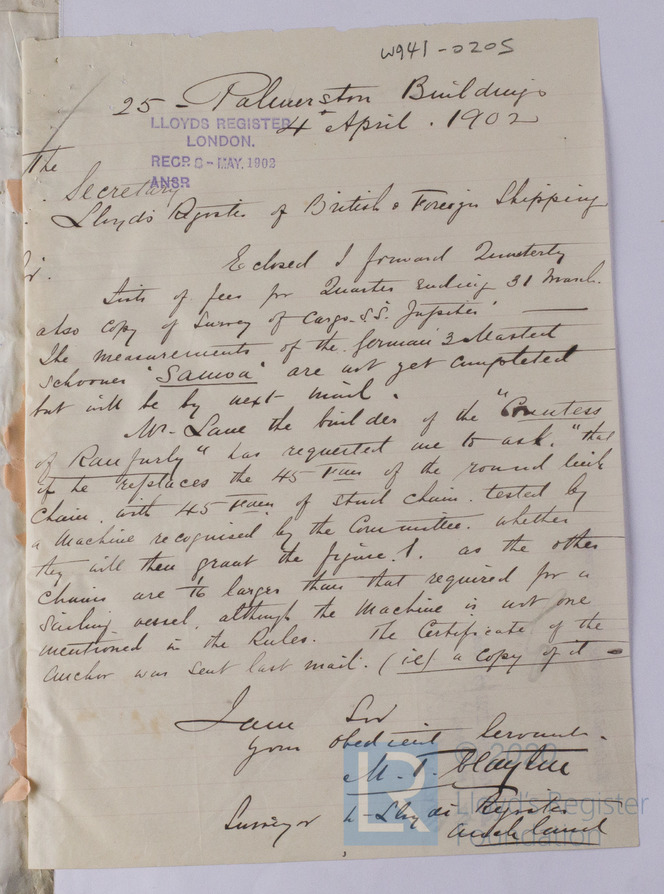 W941-0205
25 - Palmerston Buildings
4 April . 1902
LLOYDS REGISTER
LONDON.
RECP. 8 - MAY. 1902
ANSR
The
Secretary
Lloyds Register of British & Foreign Shipping
Sir.
Eclosed I forward Quarterly
Lists of fees for Quarter Ending 31 March.
also copy of Survey of Cargo. S.S. Jupiter'
The measurements of the German 3 Masted
Schooner "Samoa" are not yet completed
but will be by next mail.
Mr. Lane the builder of the "Countess
of Ranfurly" has requested me to ask. "that
if he replaces the 45 of the round link
Chain. with 45 of stud chain. tested by
a Machine recognised by the Committee. whether
they will then grant the figure. 1. as the other
Chains are 1/16 larger than that required for a
Sailing vessel. although the Machine is not one
mentioned in the Rules. The Certificate of the
Anchor was sent last mail. (ie) a copy of it -
I am Sir
your obedient Servant.
M. T. Clayton
Surveyor to Lloyds Register
Auckland
© 2020
LR
Lloyd's Register
Foundation